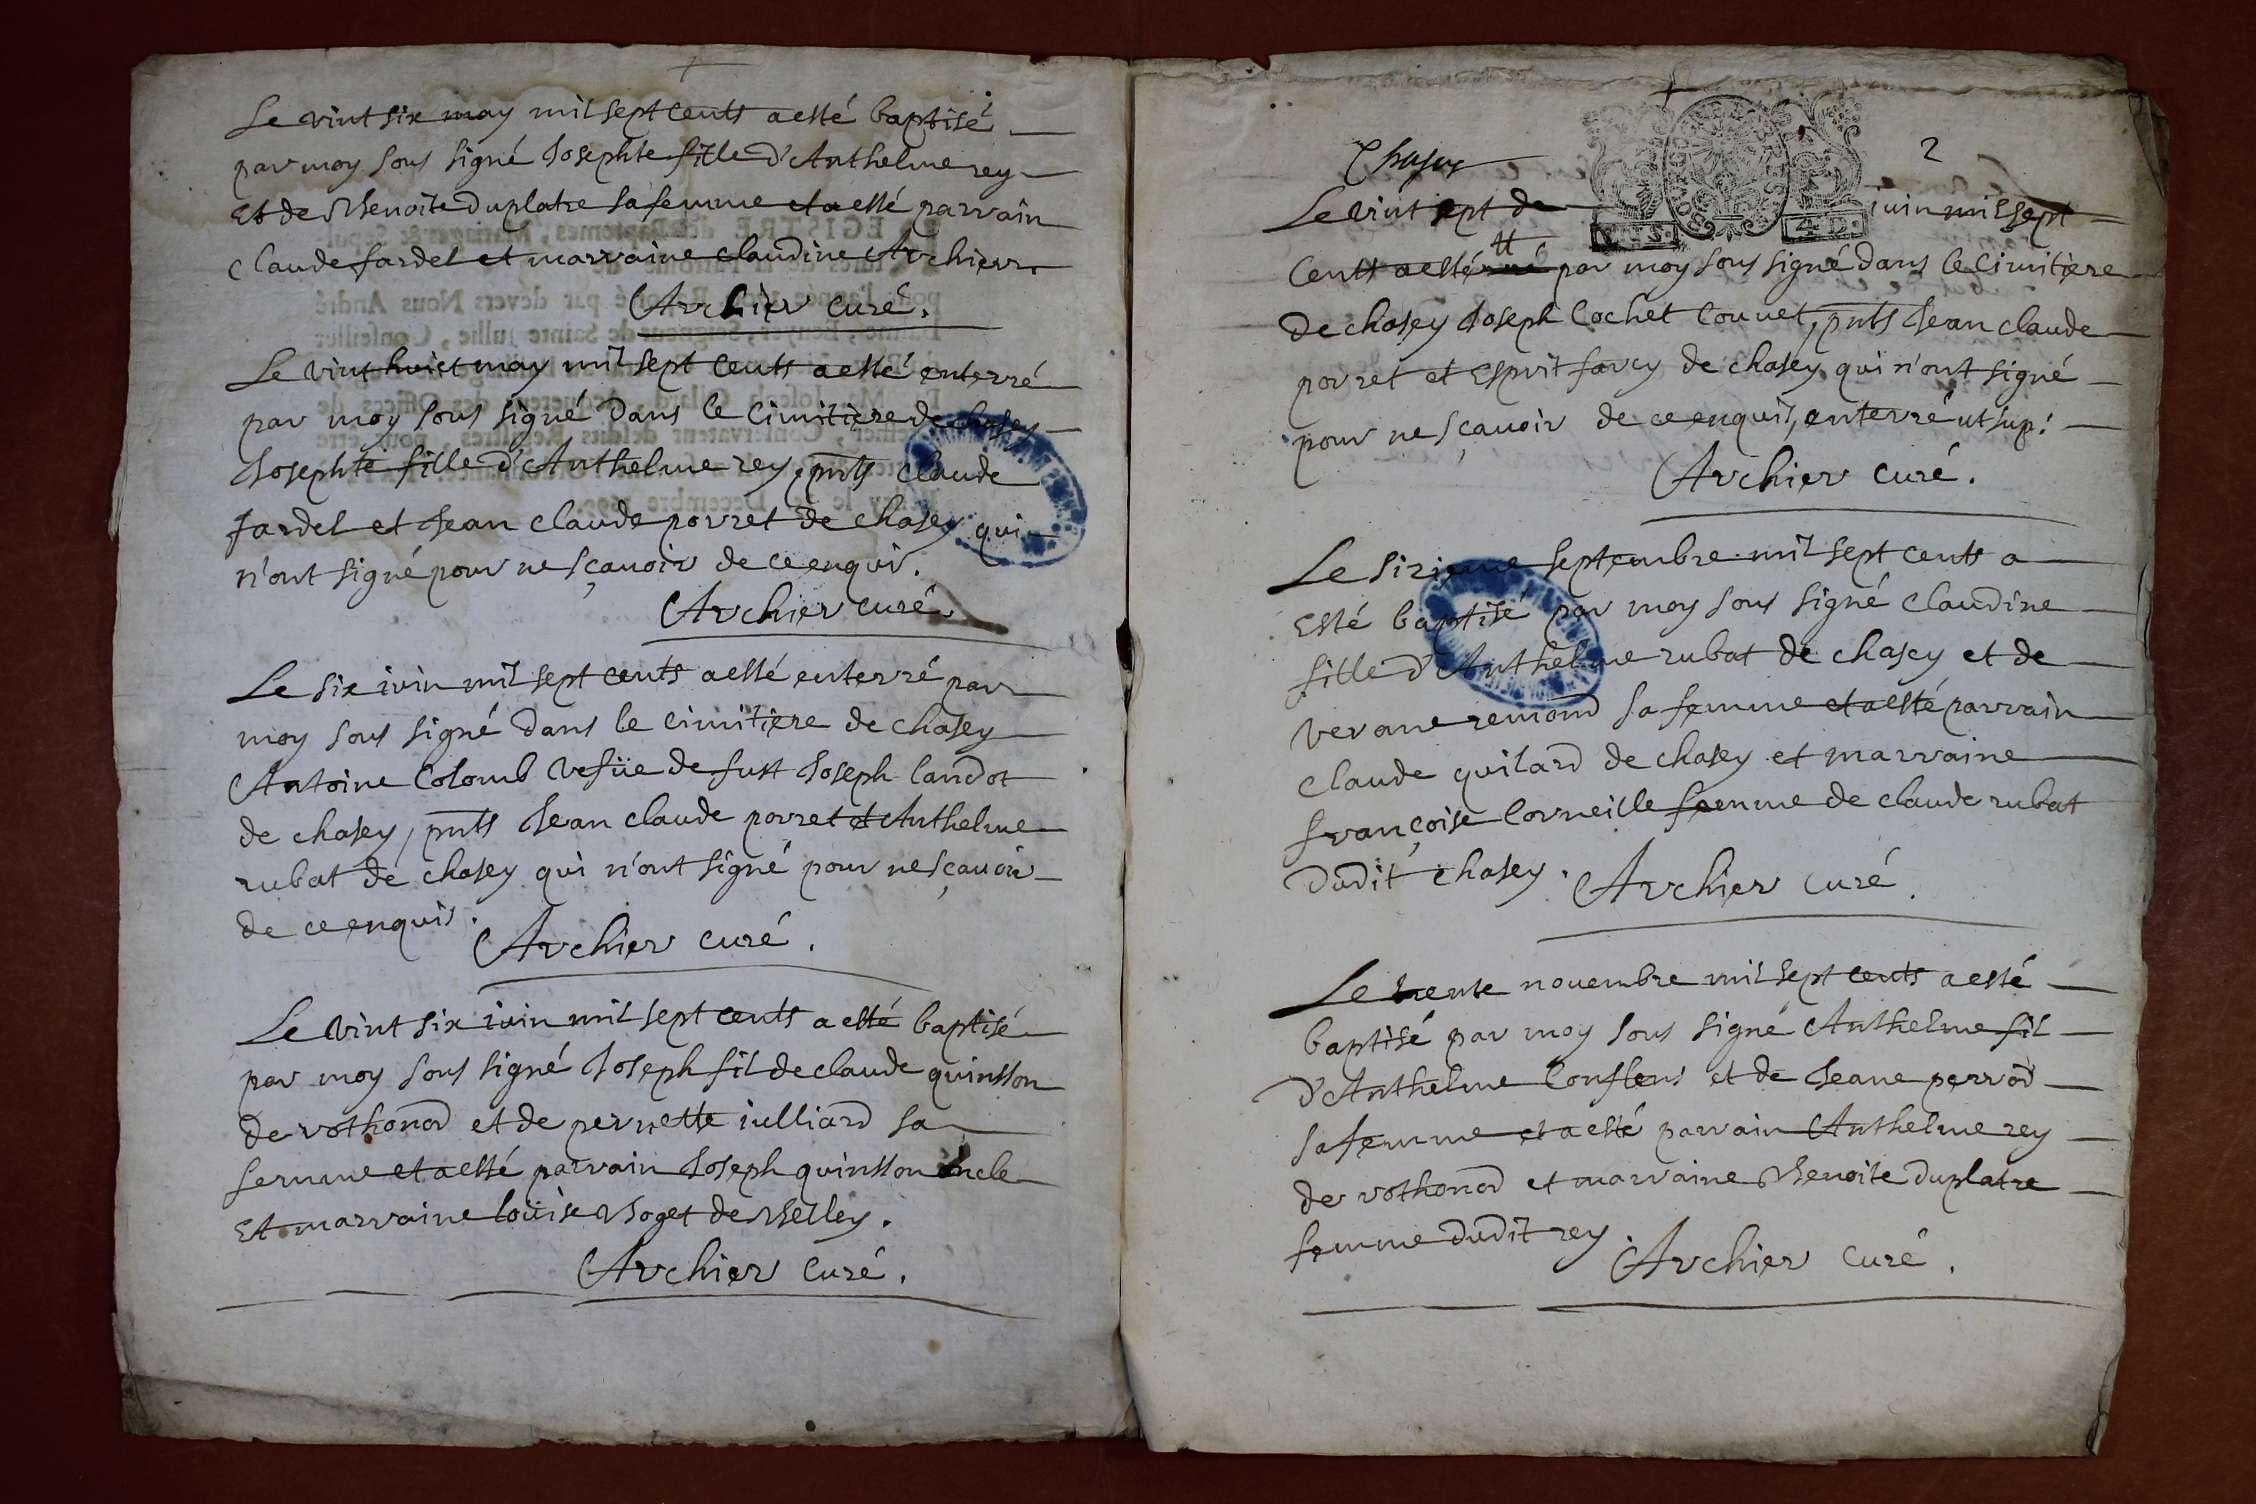 Le vint six may mil sept cents a esté baptisé
par moy sous signé Josephte fille d'Anthelme rey
Et de Benoite Duplatre sa femme et a esté parrain
Claude fardel et marraine claudine Archier.
Archier curé.
Le vint huict may mil sept cents a esté enterré
par moy sous signé dans le cimitiere de chasey
Josephte fille d'Anthelme rey, pnts claude
fardel et Jean claude porret de chasey qui
n'ont signé pour ne sçavoir de ce enquis.
Archier curé.
Le six iuin mil sept cents a esté enterré par
moy sous signé dans le cimitiere de chasey
Antoine Colomb vefüe de fust Joseph landot
de chasey, pnts Jean claude porret et Anthelme
rubat de chasey qui n'ont signé pour ne sçavoir
de ce enquis.
Archier curé.
Le vint six iuin mil sept cents a esté baptisé
par moy sous signé Joseph fil de claude quinson
de rothonod et de pernette iulliard sa
femme et a esté parrain Joseph quinson oncle
Et marraine loüise Boget de Belley.
Archier curé.
2
Chasey
Le vint sept de iuin mil sept
cents a esté par moy sous signé dans le cimitiere
de chasey Joseph Cochet Couuet, pnts Jean claude
porret et Esprit farcy de chasey qui n'ont signé
pour ne sçavoir de ce enquis, enterré ut sup:
Archier curé.
Le sixieme septembre mil sept cents a
esté baptisé par moy sous signé Claudine
fille d'Anthelme rubat de chasey et de
verane remond sa femme et a esté parrain
claude guilard de chasey et marraine
françoise Corneille femme de claude rubat
dudit chasey.
Archier curé.
Le trente nouembre mil sept cents a esté
baptisé par moy sous signé Anthelme fil
d'Anthelme Conflens et de Jeane perrod
sa femme et a esté parrain Anthelme rey
de rothonod et marraine Benoite Duplatre
femme dudit rey.
Archier curé.